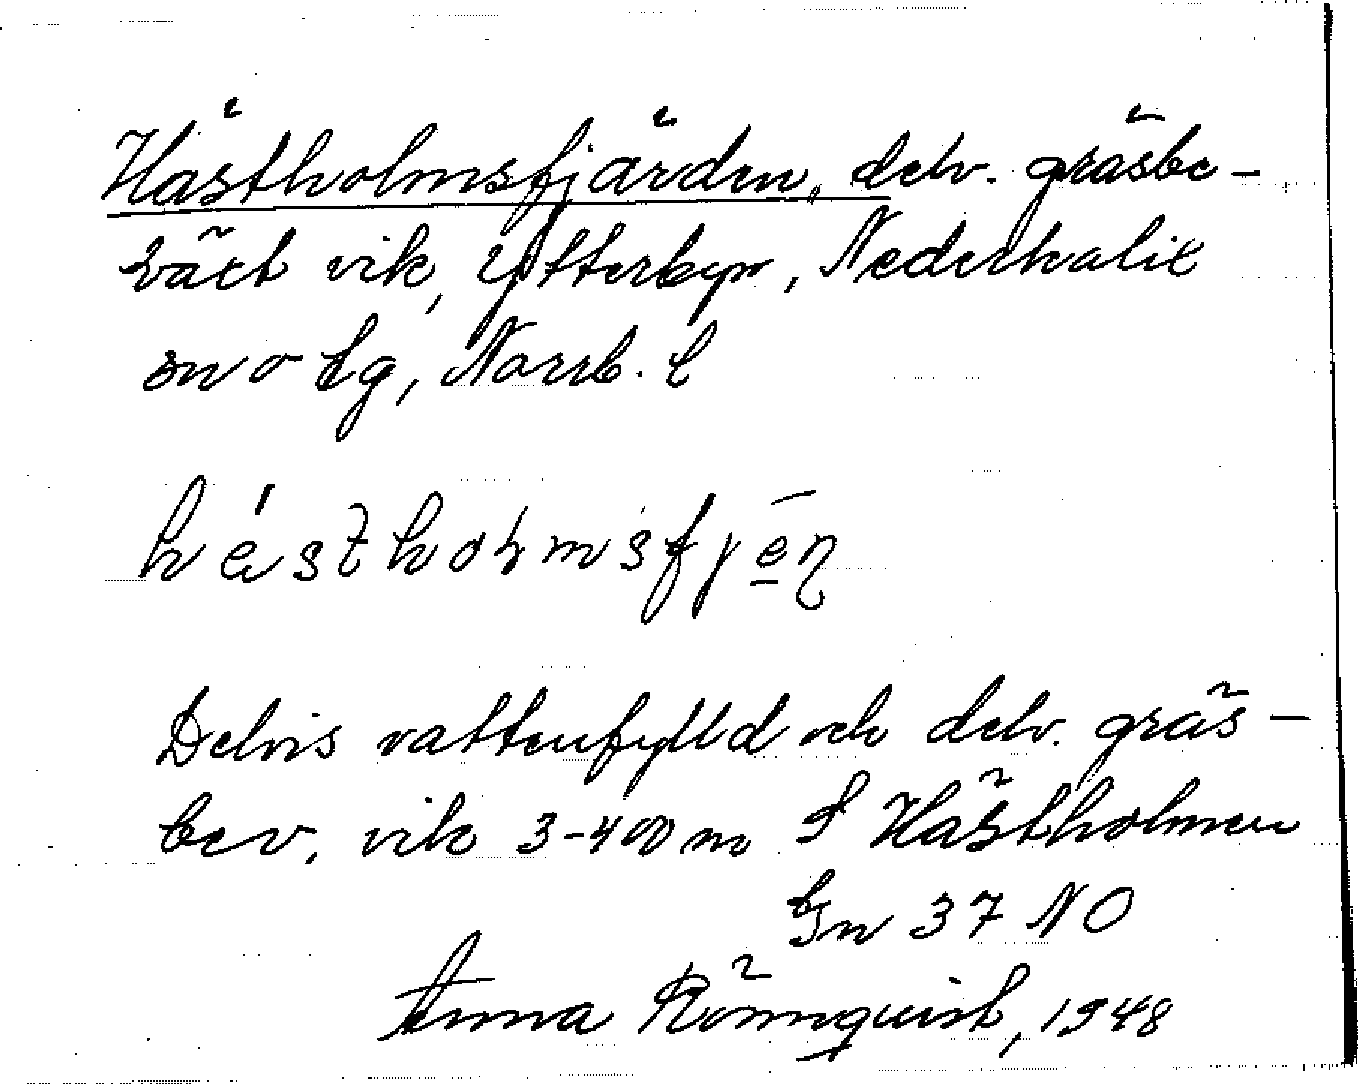 Hästholmsfjärden, delv. gräsbe-
växt vik, Ytterbyn, Nederkalix
sn o tg, Norrb. l
hä́stholmsfjēn
Delvis vattenfylld och delv. gräs-
bev. vik 3-400 m S Hästholmen
Gn 37 NO
Anna Rönnquist, 1948